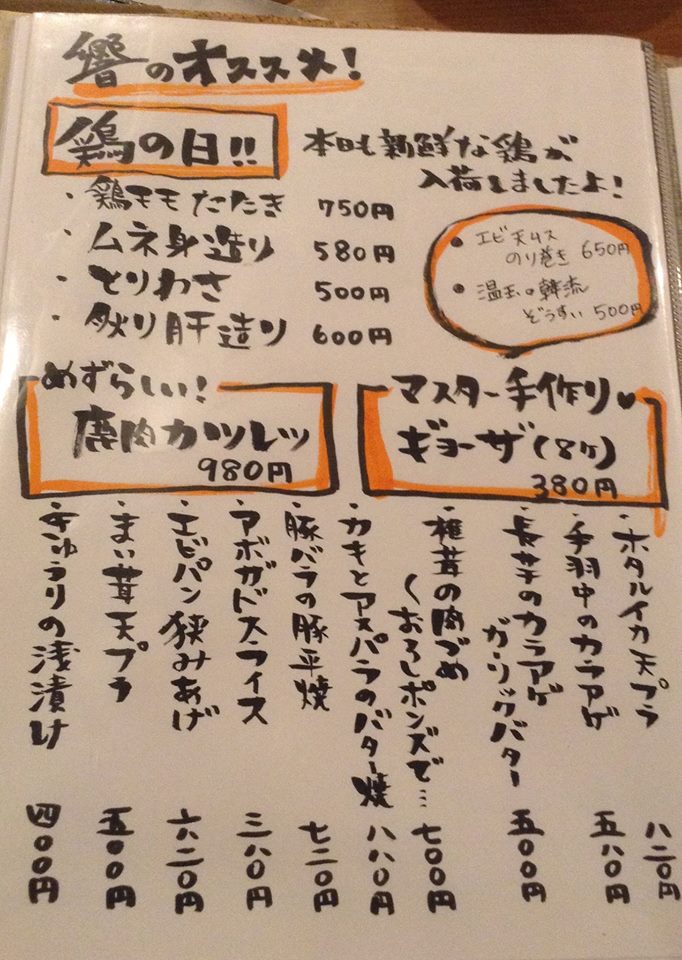 響のオススメ!
鶏の日!!
本日も新鮮な鶏が
入荷しましたよ!
・鶏モモたたき 750円
・ムネ身造り 580円
・とりわさ 500円
・炙り肝造り 600円
・エビ天ムス
のり巻き 650円
・温玉の韓流
ぞうすい 500円
めずらしい!
鹿肉カツレツ
980円
マスター手作り♥
ギョーザ(8ヶ)
380円
・ホタルイカ天プラ 八二〇円
・手羽中のカラアゲ 五八〇円
・長芋のカラアゲ
ガーリックバター 五〇〇円
・椎茸の肉づめ
〜おろしポンズで… 七〇〇円
・カキとアスパラのバター焼 八八〇円
・豚バラの豚平焼 七二〇円
・アボガドスライス 三八〇円
・エビパン挟みあげ 六二〇円
・まい茸天プラ 五〇〇円
・きゅうりの浅漬け 四〇〇円